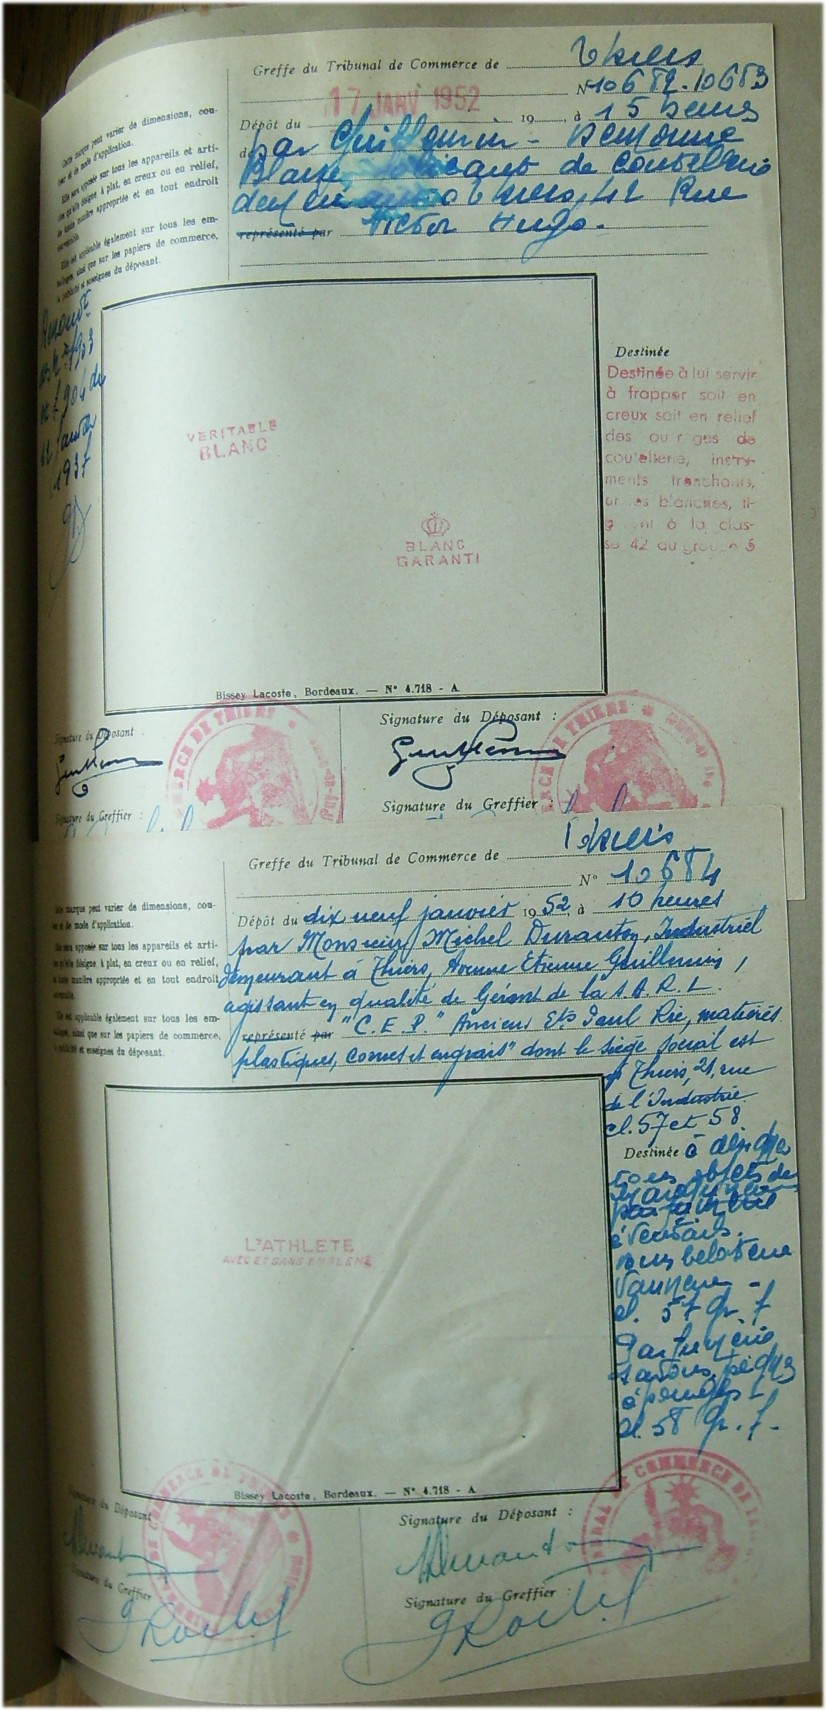 Greffe du Tribunal de Commerce de Thiers
N° 10682-10683
17 JANV 1952
Dépôt du 19 , à 15 heures
par Guillemin-Demonne
Blaise, de Coutellerie
à Thiers, 42 Rue
représenté par Victor Hugo.
Cette marque peut varier de dimensions, cou-
leur et de mode d'application.
Elle sera apposée sur tous les appareils et arti-
cles qu'elle désigne, à plat, en creux ou en relief,
de toute manière appropriée et en tout endroit
convenable.
Elle est applicable également sur tous les em-
ballages, ainsi que sur les papiers de commerce,
la publicité et enseignes du déposant.
du
12 Janvier
1937
VERITABLE
BLANC
BLANC
GARANTI
Destinée
Destinée à lui servir
à frapper soit en
creux soit en relief
des ouvrages de
coutellerie, instru-
ments tranchants,
armes blanches, ti-
à la clas-
se 42 du groupe 5
Bissey Lacoste, Bordeaux. — N° 4.718 - A.
Signature du Déposant
Signature du Déposant :
Signature du Greffier :
Signature du Greffier :
Greffe du Tribunal de Commerce de Thiers
N° 10684
Dépôt du dix neuf janvier 1952, à 10 heures
par Monsieur Michel Duranton, Industriel
demeurant à Thiers, Avenue Etienne Guillemin,
agissant en qualité de Gérant de la S.A.R.L.
représenté par "C.E.P." Anciens Ets Paul Rié, matières
plastiques, cornes et engrais" dont le siège social est
à Thiers, 21, rue
de l'Industrie.
cl. 57 et 58
Cette marque peut varier de dimensions, cou-
leur et de mode d'application.
Elle sera apposée sur tous les appareils et arti-
cles qu'elle désigne, à plat, en creux ou en relief,
de toute manière appropriée et en tout endroit
convenable.
Elle est applicable également sur tous les em-
ballages, ainsi que sur les papiers de commerce,
la publicité et enseignes du déposant.
Destinée à désigner
tous objets de
éventails
vannerie -
cl. 57 gr. f
Parfumerie
savons, peignes
éponges -
cl. 58 gr. f.
L'ATHLETE
AVEC ET SANS EMBLEME
Bissey Lacoste, Bordeaux. — N° 4.718 - A
Signature du Déposant
Signature du Déposant :
Signature du Greffier
Signature du Greffier :